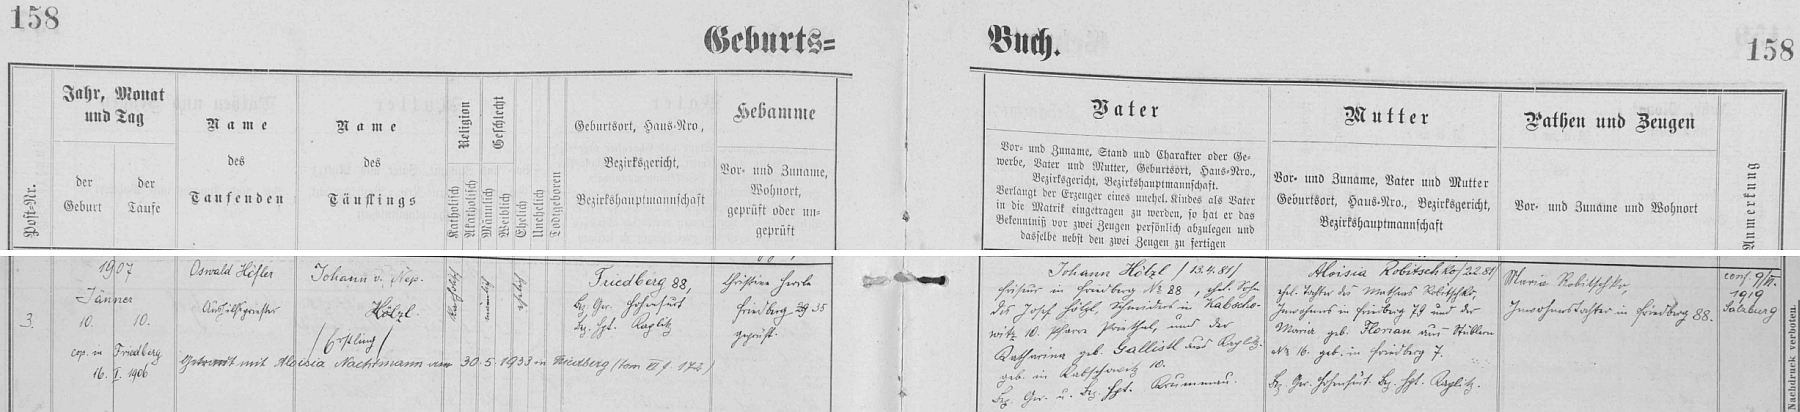 158
Geburts=
Buch.
158
Post-Nr.
Jahr, Monat
und Tag
der
Geburt
der
Taufe
Name
des
Taufenden
Name
des
Täuflings
Religion
Katholisch
Akatholisch
Geschlecht
Männlich
Weiblich
Ehelich
Unehelich
Todtgeboren
Geburtsort, Haus-Nro.,
Bezirksgericht,
Bezirkshauptmannschaft
Hebamme
Vor- und Zuname,
Wohnort,
geprüft oder un-
geprüft
Vater
Vor- und Zuname, Stand und Charakter oder Ge-
werbe, Vater und Mutter, Geburtsort, Haus-Nro.,
Bezirksgericht, Bezirkshauptmannschaft.
Verlangt der Erzeuger eines unehel. Kindes als Vater
in die Matrik eingetragen zu werden, so hat er das
Bekenntniß vor zwei Zeugen persönlich abzulegen und
dasselbe nebst den zwei Zeugen zu fertigen
Mutter
Vor- und Zuname, Vater und Mutter
Geburtsort, Haus-Nro., Bezirksgericht,
Bezirkshauptmannschaft
Pathen und Zeugen
Vor- und Zuname und Wohnort
Anmerkung
3.
1907
Jänner
10. 10.
cop. in Friedberg
16. I. 1906
Oswald Höfler
Aushilfspriester
Johann v. Nep.
Hölzl
/Erstling/
Getraut mit Aloisia Nachtmann am 30.5.1933 in Friedberg (tom VII f. 172)
katholisch
männlich
ehelich
Friedberg 88,
Bz. Ger. Hohenfurt
Bz. Hpt. Kaplitz
Christine
Friedberg 35
geprüft
Johann Hölzl /13.4.81/
Friseur in Friedberg No 88, ehel. Sohn
des Josef Hölzl, Schneiders in
10. Pfarre Priethal, und der
Katharina geb. Gallistl aus Kaplitz.
geb. in 10.
Bz. Ger. u. Bz. Hpt. Krummau.
Aloisia Robitschko /2.2.81/
ehel. Tochter des Mathias Robitschko,
Inwohners in Friedberg 79 und der
Maria geb. Florian aus Stüblern
No 16. geb. in Friedberg 7.
Bz. Ger. Hohenfurt. Bz. Hpt. Kaplitz.
Maria Robitschko,
Inwohnerstochter in Friedberg 88.
conf.
1919
Salzburg
Nachdruck verboten.